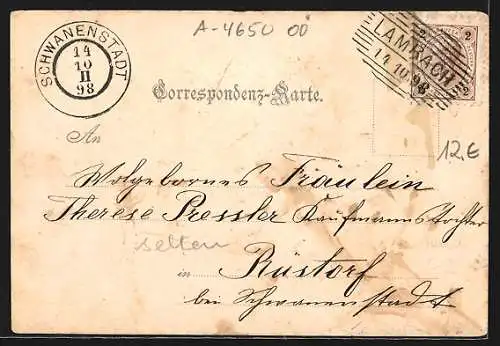 A-4650 00
SCHWANENSTADT
14
10
II
98
LAMBACH
14.10.98
2 2
2 2
Correspondenz-Karte.
12,€
An
Wolgebornes Fräulein
Therese Pressler Kaufmannstochter
selten
in Rüstorf
bei Schwanenstadt